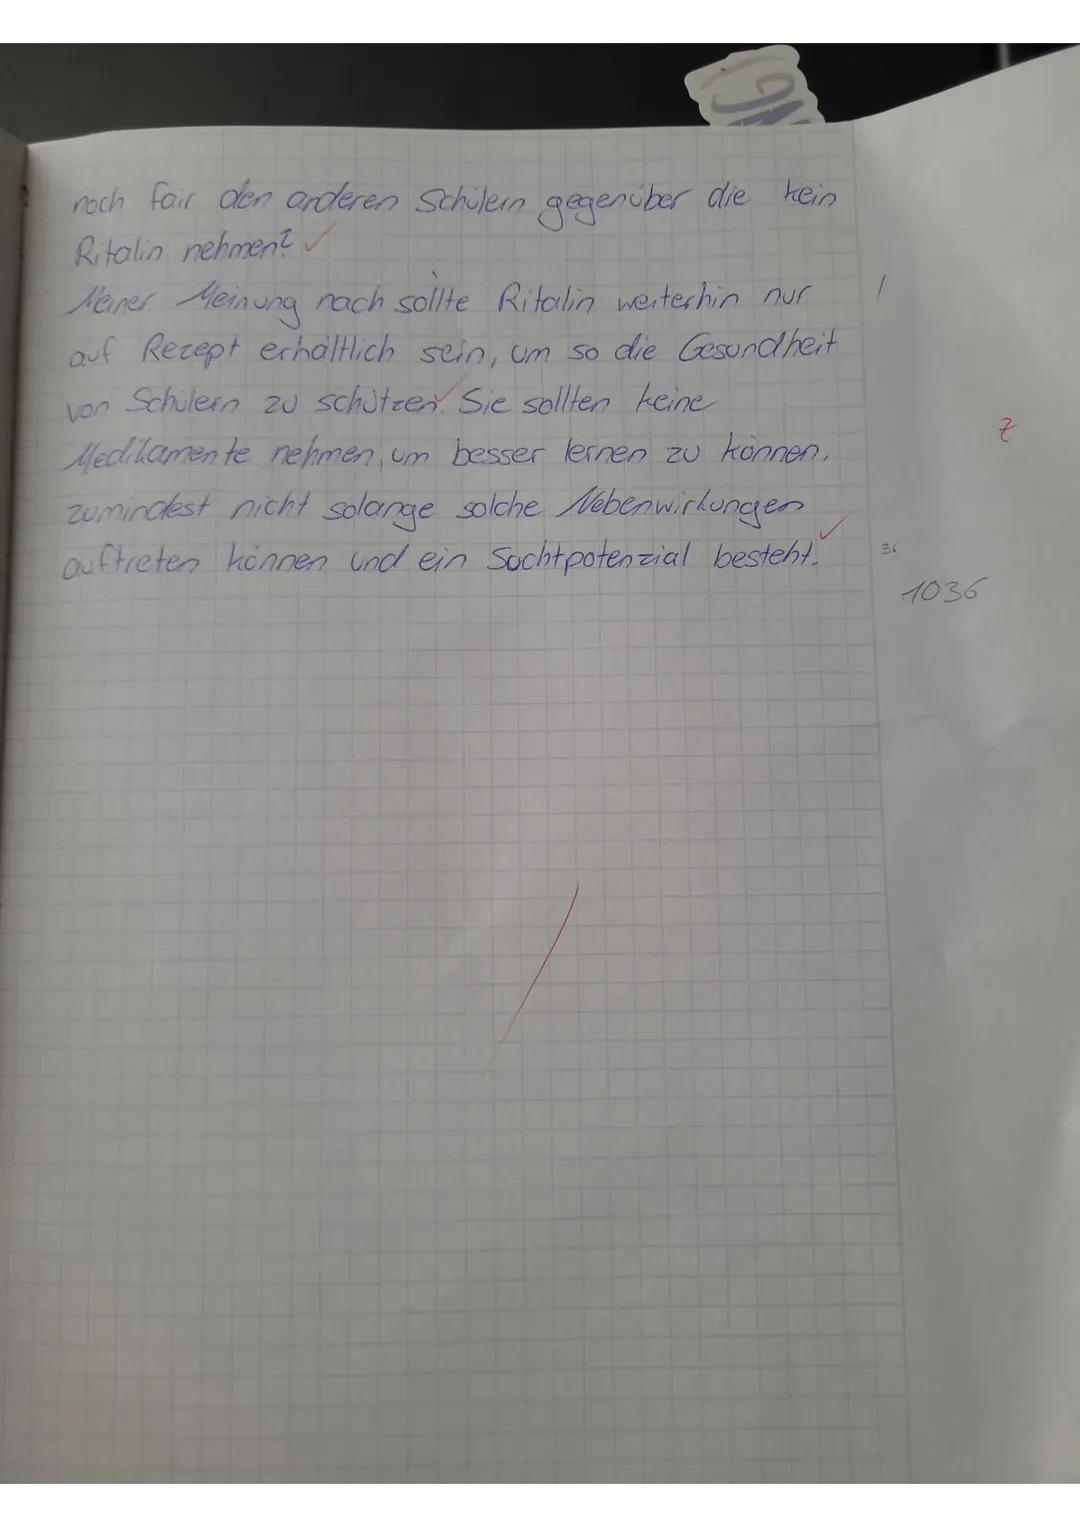 noch fair den anderen Schülern gegenüber die kein
Ritalin nehmen? ✓
Meiner Meinung nach sollte Ritalin weiterhin nur
auf Rezept erhältlich sein, um so die Gesundheit
von Schülern zu schützen. Sie sollten keine
Medikamente nehmen, um besser lernen zu können,
zumindest nicht solange solche Nebenwirkungen
auftreten können und ein Suchtpotenzial besteht. ✓
Z
36
1036